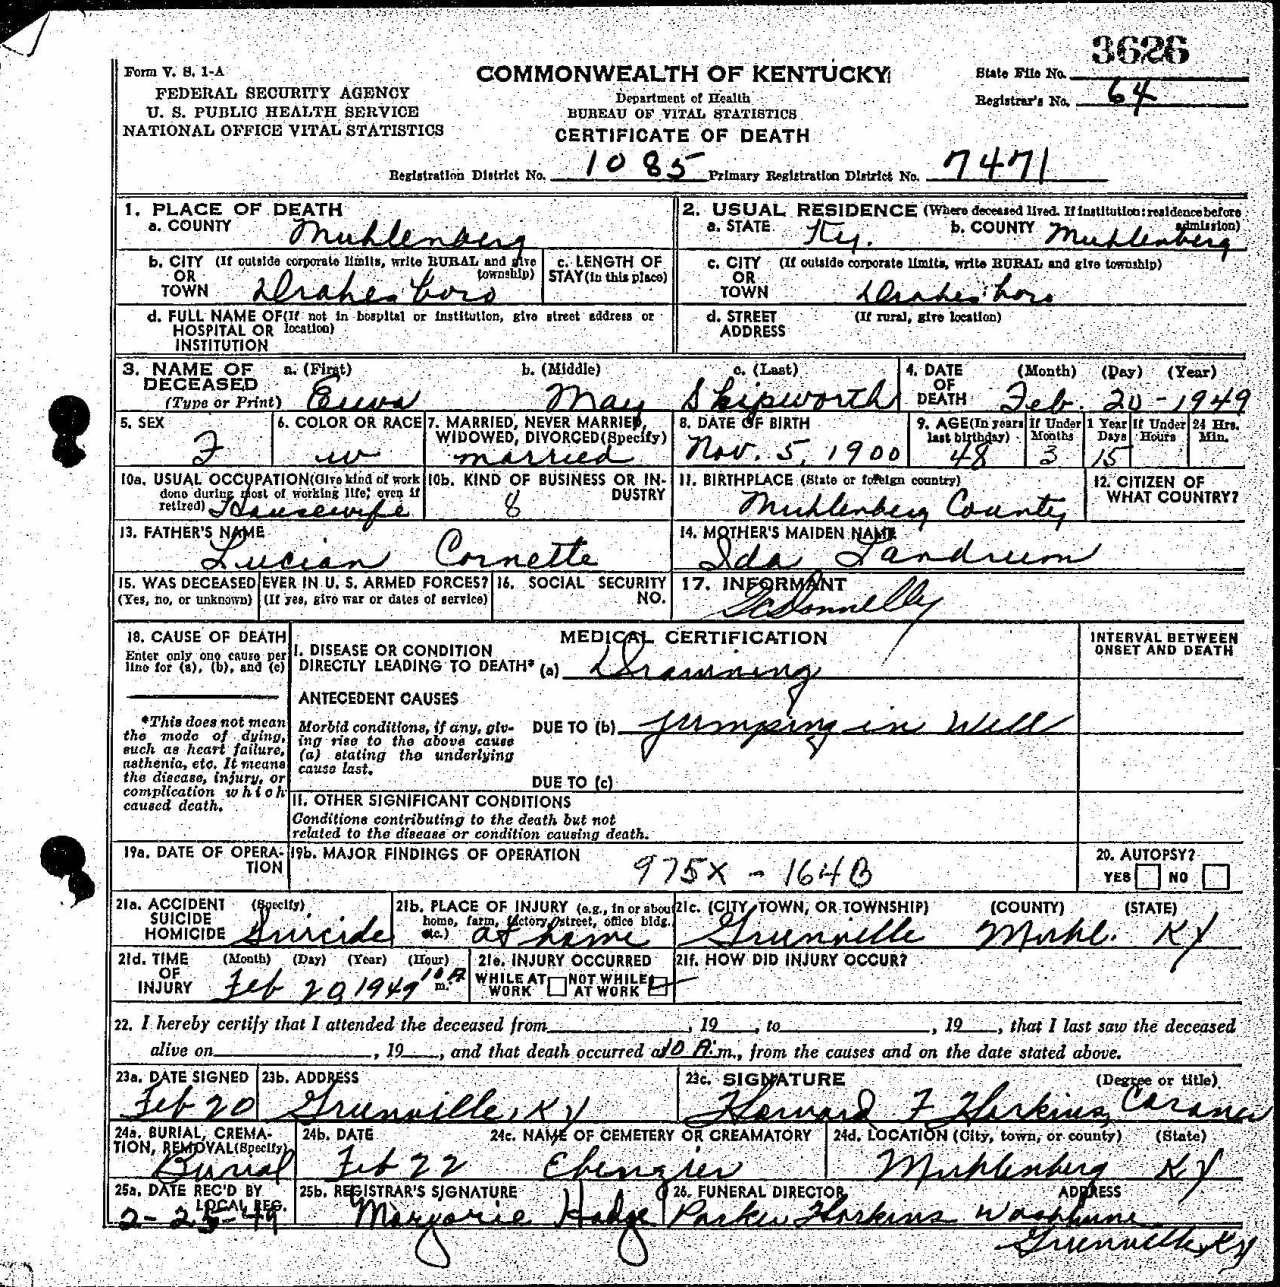 3626
Form V. S. 1-A
FEDERAL SECURITY AGENCY
U. S. PUBLIC HEALTH SERVICE
NATIONAL OFFICE VITAL STATISTICS
COMMONWEALTH OF KENTUCKY
Department of Health
BUREAU OF VITAL STATISTICS
CERTIFICATE OF DEATH
State File No.
Registrar's No. 64
Registration District No. 1085 Primary Registration District No. 7471
1. PLACE OF DEATH
a. COUNTY Muhlenberg
2. USUAL RESIDENCE (Where deceased lived. If institution: residence before admission)
a. STATE Ky. b. COUNTY Muhlenberg
b. CITY (If outside corporate limits, write RURAL and give township)
OR
TOWN Drakesboro
c. LENGTH OF
STAY (in this place)
c. CITY (If outside corporate limits, write RURAL and give township)
OR
TOWN Drakesboro
d. FULL NAME OF (If not in hospital or institution, give street address or location)
HOSPITAL OR
INSTITUTION
d. STREET (If rural, give location)
ADDRESS
3. NAME OF DECEASED
(Type or Print)
a. (First) b. (Middle) c. (Last)
May Skipworth
4. DATE OF DEATH (Month) (Day) (Year)
Feb. 20-1949
5. SEX
F
6. COLOR OR RACE
w
7. MARRIED, NEVER MARRIED,
WIDOWED, DIVORCED (Specify)
married
8. DATE OF BIRTH
Nov. 5, 1900
9. AGE (In years last birthday) If Under 1 Year If Under 24 Hrs.
Months Days Hours Min.
48 3 15
10a. USUAL OCCUPATION (Give kind of work
done during most of working life, even if
retired) Housewife
10b. KIND OF BUSINESS OR INDUSTRY
8
11. BIRTHPLACE (State or foreign country)
Muhlenberg County
12. CITIZEN OF
WHAT COUNTRY?
13. FATHER'S NAME
Lucian Cornette
14. MOTHER'S MAIDEN NAME
Ida Landrum
15. WAS DECEASED EVER IN U. S. ARMED FORCES?
(Yes, no, or unknown) (If yes, give war or dates of service)
16. SOCIAL SECURITY
NO.
17. INFORMANT
18. CAUSE OF DEATH
Enter only one cause per
line for (a), (b), and (c)
*This does not mean
the mode of dying,
such as heart failure,
asthenia, etc. It means
the disease, injury, or
complication which
caused death.
MEDICAL CERTIFICATION
INTERVAL BETWEEN
ONSET AND DEATH
I. DISEASE OR CONDITION
DIRECTLY LEADING TO DEATH* (a) Drowning
ANTECEDENT CAUSES
Morbid conditions, if any, giv-
ing rise to the above cause
(a) stating the underlying
cause last.
DUE TO (b) jumping in Well
DUE TO (c)
II. OTHER SIGNIFICANT CONDITIONS
Conditions contributing to the death but not
related to the disease or condition causing death.
19a. DATE OF OPERA-
TION
19b. MAJOR FINDINGS OF OPERATION
975X - 164B
20. AUTOPSY?
YES NO
21a. ACCIDENT (Specify)
SUICIDE
HOMICIDE Suicide
21b. PLACE OF INJURY (e.g., in or about
home, farm, factory, street, office bldg.,
etc.) at home
21c. (CITY, TOWN, OR TOWNSHIP) (COUNTY) (STATE)
Grunville Muhl. Ky
21d. TIME (Month) (Day) (Year) (Hour)
OF
INJURY Feb 20 1949 10 A m.
21e. INJURY OCCURRED
WHILE AT WORK NOT WHILE AT WORK
21f. HOW DID INJURY OCCUR?
22. I hereby certify that I attended the deceased from , 19 , to , 19 , that I last saw the deceased
alive on , 19 , and that death occurred at 10 A. m., from the causes and on the date stated above.
23a. DATE SIGNED
Feb 20
23b. ADDRESS
Grunville, Ky
23c. SIGNATURE (Degree or title)
Harvard F Harkins, Coroner
24a. BURIAL, CREMA-
TION, REMOVAL (Specify)
Burial
24b. DATE
Feb 22
24c. NAME OF CEMETERY OR CREAMATORY
Ebenzier
24d. LOCATION (City, town, or county) (State)
Muhlenberg Ky
25a. DATE REC'D BY
LOCAL REG.
25b. REGISTRAR'S SIGNATURE
Marjorie Hodge
26. FUNERAL DIRECTOR ADDRESS
Harkins
Grunville, Ky